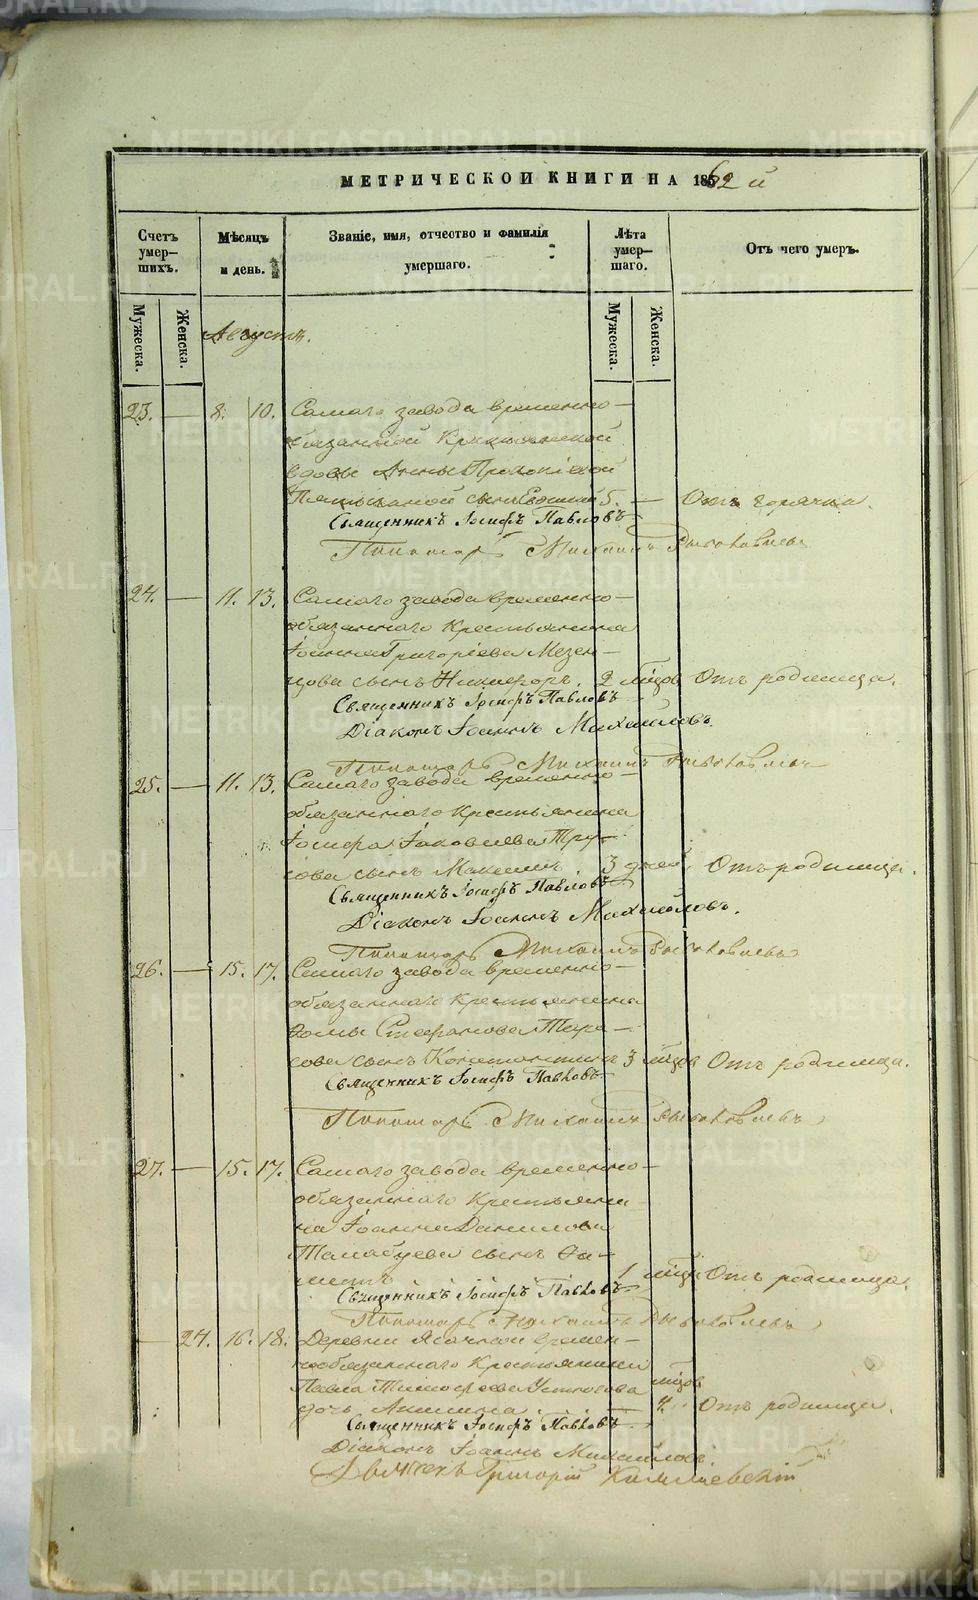 METRIKI.GASO-URAL.RU
МЕТРИЧЕСКОЙ КНИГИ НА 1862 й
Счетъ умер- шихъ.
Мѣсяцъ и день.
Званіе, имя, отчество и фамилія умершаго.
Лѣта умер- шаго.
Отъ чего умеръ.
Мужеска.
Женска.
Мужеска.
Женска.
Августъ.
23. — 8. 10. Самаго завода временно-
обязанной Крестьянской
вдовы Анны Прокопіевой
сынъ 5. — Отъ горячки.
Священникъ Іосифъ Павловъ
Пономарь Михаилъ
24. — 11. 13. Самаго завода временно-
обязаннаго Крестьянина
Іоанна Григоріева Мезен-
цова сынъ Никифоръ. 2 мѣсцов Отъ родимца.
Священникъ Іосифъ Павловъ
Діаконъ Іоаннъ Михайловъ.
Пономарь Михаилъ
25. — 11. 13. Самаго завода временно-
обязаннаго Крестьянина
Іосифа Іаковлева Тру-
сова сынъ Максимъ 3 дней Отъ родимца.
Священникъ Іосифъ Павловъ
Діаконъ Іоаннъ Михайловъ.
Пономарь Михаилъ
26. — 15. 17. Самаго завода временно-
обязаннаго Крестьянина
Ѳомы Стефанова
сынъ Константинъ 3 мѣсцов Отъ родимца.
Священникъ Іосифъ Павловъ
Пономарь Михаилъ
27. — 15. 17. Самаго завода временно-
обязаннаго Крестьяни-
на Іоанна Данилова
сынъ
1 мѣсц Отъ родимца.
Священникъ Іосифъ Павловъ
Пономарь Михаилъ
— 24. 16. 18. Деревни времен-
нообязаннаго Крестьянина
Павла Тимофеева Устюгова мѣсцов
дочь Акилина. — 4. Отъ родимца.
Священникъ Іосифъ Павловъ
Діаконъ Іоаннъ Михайловъ.
Дьячекъ Григорій